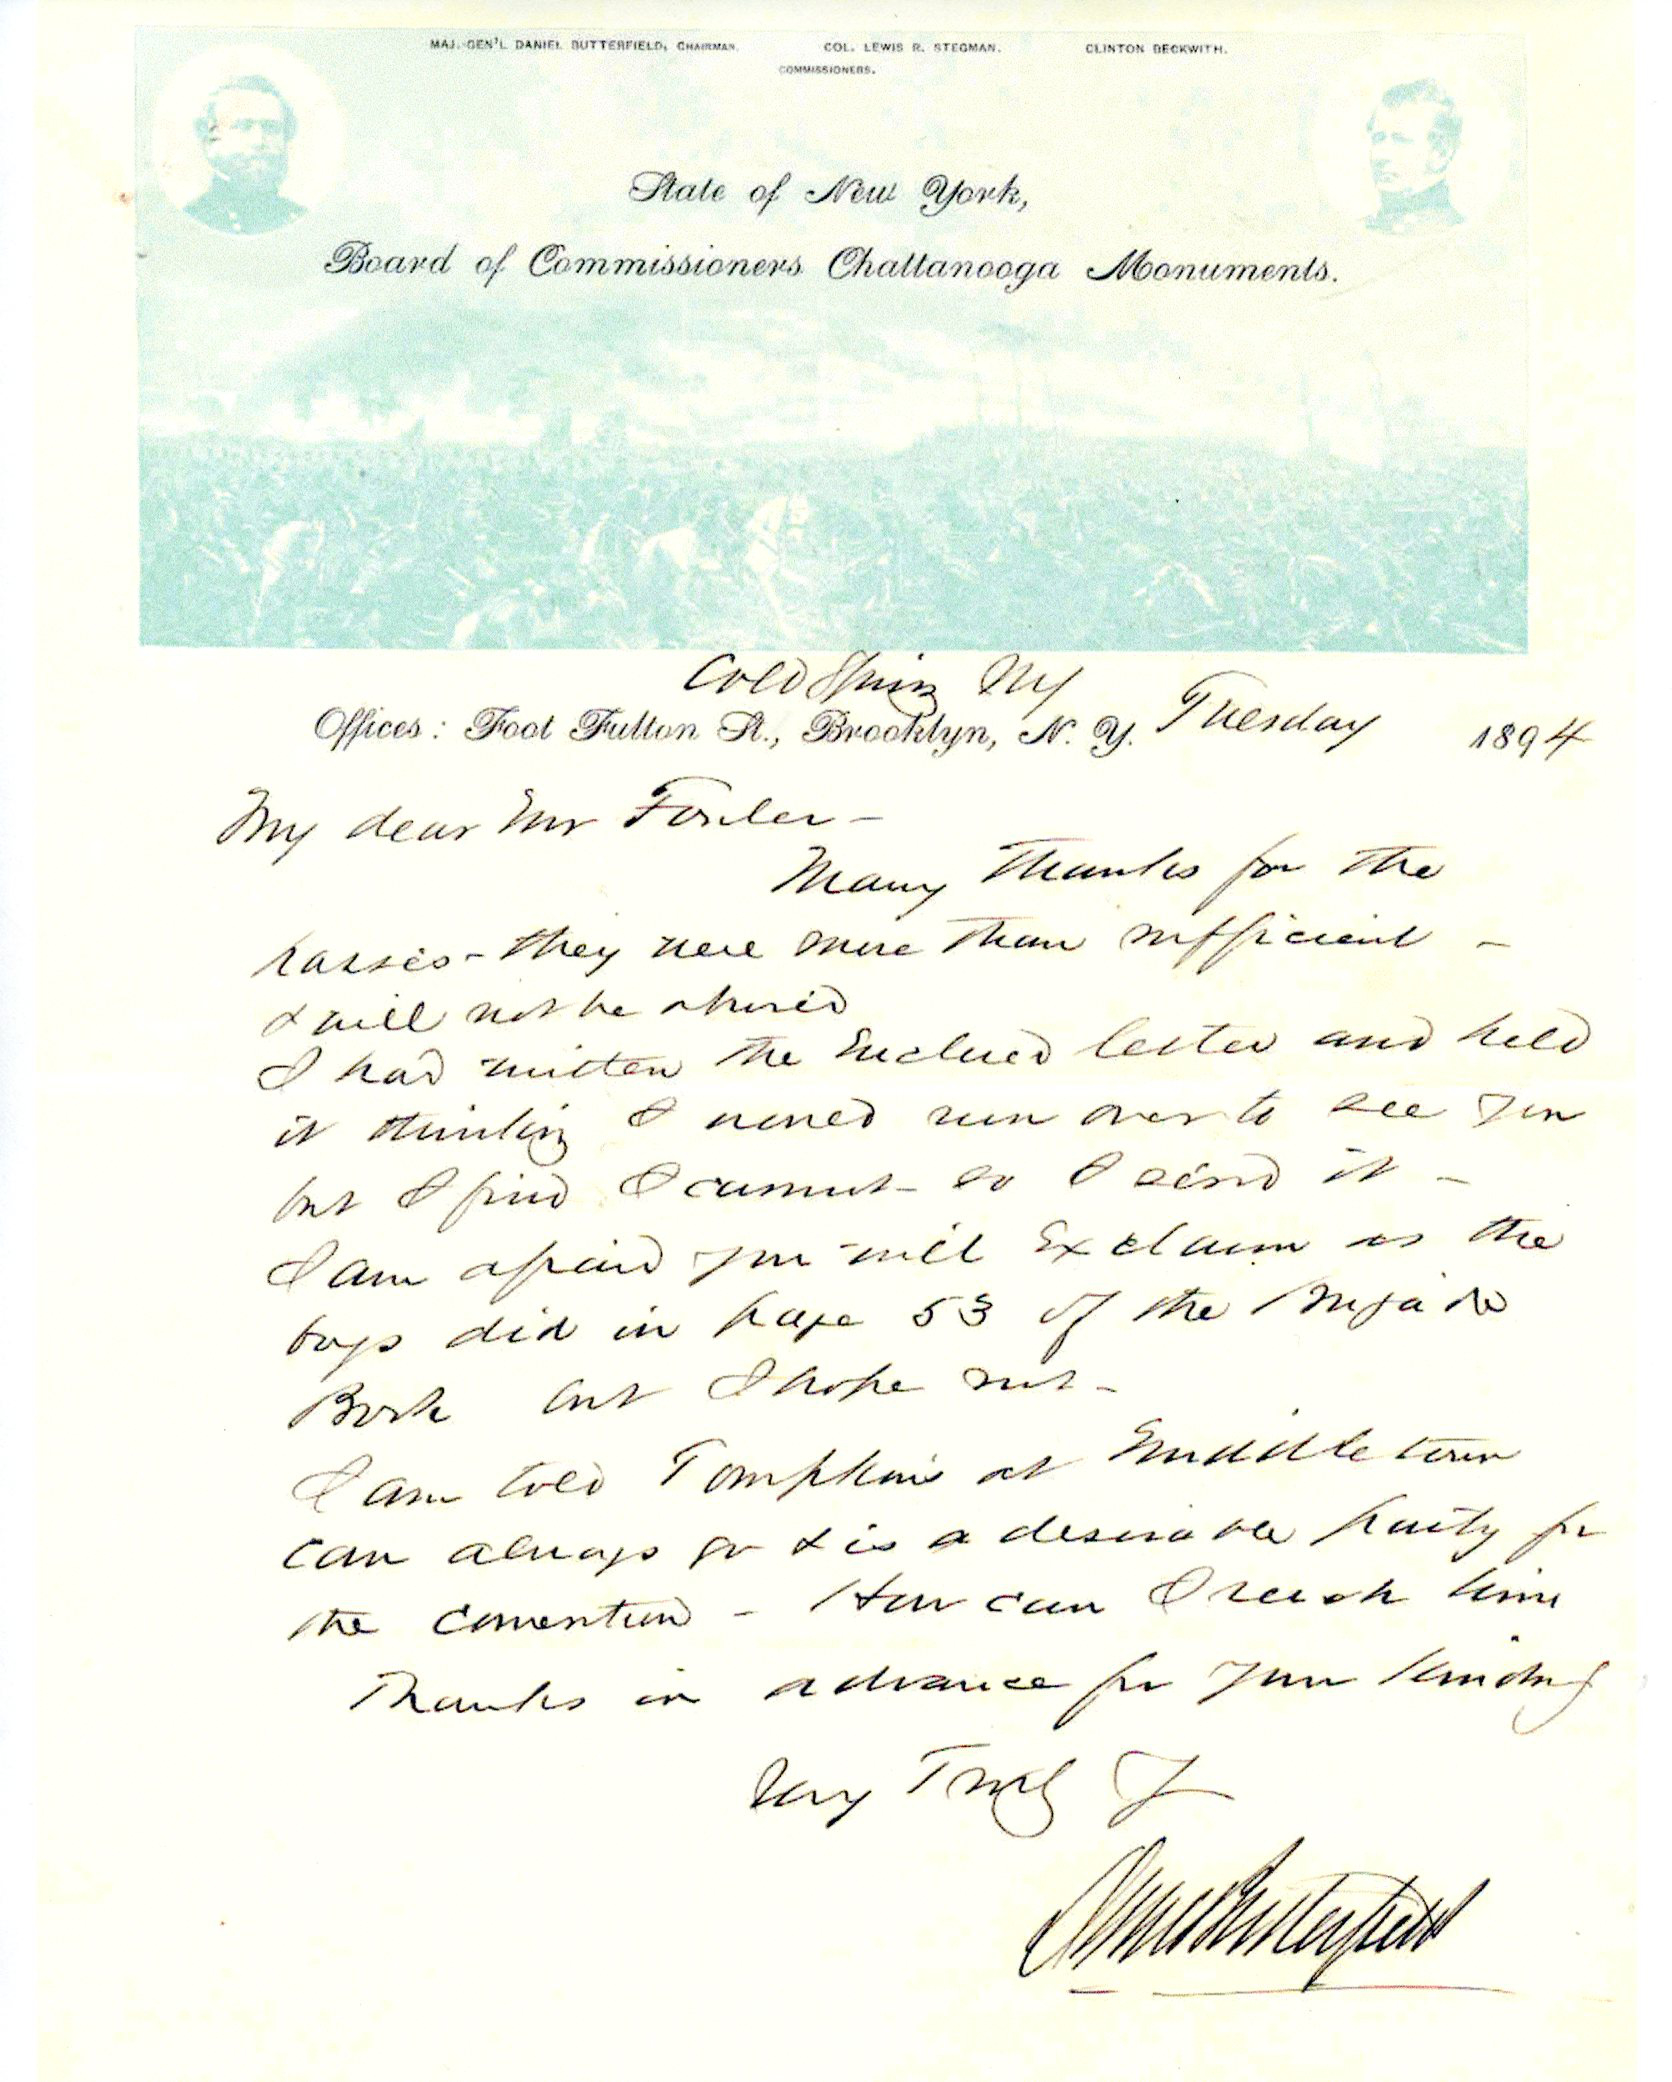 MAJ.-GEN'L DANIEL BUTTERFIELD, CHAIRMAN. COL. LEWIS R. STEGMAN. CLINTON BECKWITH.
COMMISSIONERS.
State of New York,
Board of Commissioners Chattanooga Monuments.
Cold Spring NY
Offices: Foot Fulton St., Brooklyn, N. Y. Tuesday 1894
My dear Mr Fowler -
Many Thanks for the
passes - they were more than sufficient -
& will not be abused
I had written the Enclosed letter and held
it thinking I would run over to see you
but I find I cannot - so I send it -
I am afraid you will Exclaim as the
boys did in page 53 of the Brigade
Book but I hope not -
I am told Tompkins at Middletown
can always go & is a desirable party for
the convention - How can I reach him
Thanks in advance for your kindness
Very Truly Y
Daniel Butterfield